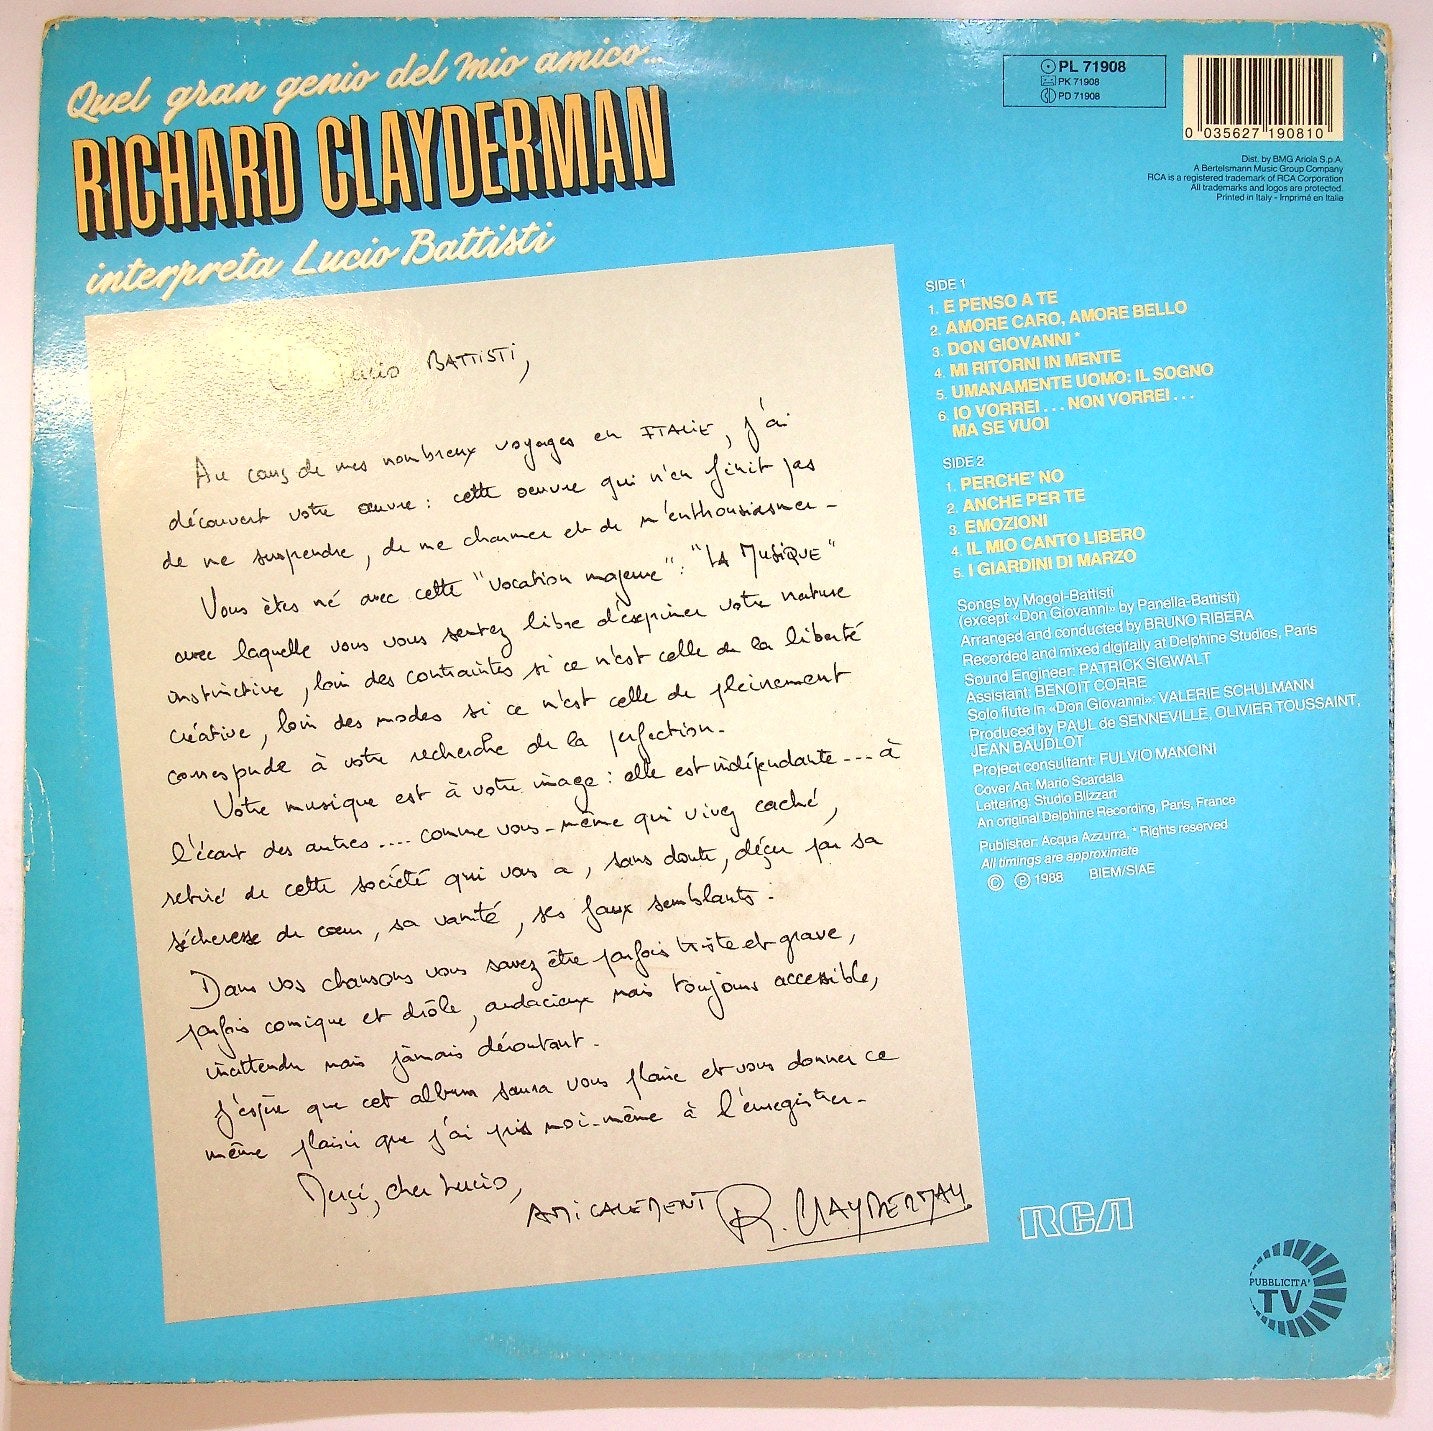 Quel gran genio del mio amico...
RICHARD CLAYDERMAN
interpreta Lucio Battisti
PL 71908
PK 71908
PD 71908
0 035627 190810
Dist. by BMG Ariola S.p.A.
A Bertelsmann Music Group Company
RCA is a registered trademark of RCA Corporation
All trademarks and logos are protected.
Printed in Italy - Imprimé en Italie
Lucio BATTISTI,
Au cours de mes nombreux voyages en ITALIE, j'ai
découvert votre œuvre : cette oeuvre qui n'en finit pas
de me surprendre, de me charmer et de m'enthousiasmer -
Vous êtes né avec cette "vocation majeure" : "LA MUSIQUE"
avec laquelle vous vous sentez libre d'exprimer votre nature
instinctive, loin des contraintes si ce n'est celle de la liberté
créative, loin des modes si ce n'est celle de pleinement
correspondre à votre recherche de la perfection -
Votre musique est à votre image : elle est indépendante .... à
l'écart des autres .... comme vous-même qui vivez caché,
retiré de cette société qui vous a, sans doute, déçu par sa
sécheresse de cœur, sa vanité, ses faux semblants -
Dans vos chansons vous savez être parfois triste et grave,
parfois comique et drôle, audacieux mais toujours accessible,
inattendu mais jamais déroutant -
J'espère que cet album saura vous plaire et vous donner ce
même plaisir que j'ai pris moi-même à l'enregistrer -
Merçi, cher Lucio,
AMICALEMENT R. CLAYDERMAN
SIDE 1
1. E PENSO A TE
2. AMORE CARO, AMORE BELLO
3. DON GIOVANNI *
4. MI RITORNI IN MENTE
5. UMANAMENTE UOMO: IL SOGNO
6. IO VORREI... NON VORREI...
MA SE VUOI
SIDE 2
1. PERCHE' NO
2. ANCHE PER TE
3. EMOZIONI
4. IL MIO CANTO LIBERO
5. I GIARDINI DI MARZO
Songs by Mogol-Battisti
(except «Don Giovanni» by Panella-Battisti)
Arranged and conducted by BRUNO RIBERA
Recorded and mixed digitally at Delphine Studios, Paris
Sound Engineer: PATRICK SIGWALT
Assistant: BENOIT CORRE
Solo flute in «Don Giovanni»: VALERIE SCHULMANN
Produced by PAUL de SENNEVILLE, OLIVIER TOUSSAINT,
JEAN BAUDLOT
Project consultant: FULVIO MANCINI
Cover Art: Mario Scardala
Lettering: Studio Blizzart
An original Delphine Recording, Paris, France
Publisher: Acqua Azzurra, * Rights reserved
All timings are approximate
© ℗ 1988 BIEM/SIAE
RCA
PUBBLICITA'
TV